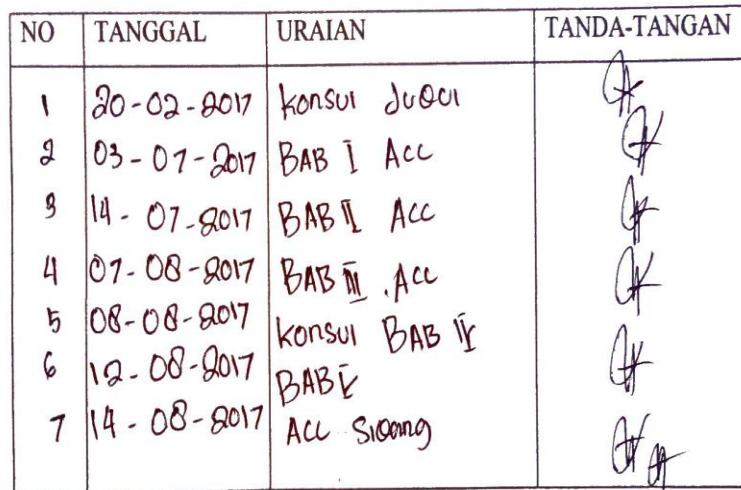 NO TANGGAL URAIAN TANDA-TANGAN
1 20-02-2017 Konsul Judul
2 03-07-2017 BAB I ACC
3 14-07-2017 BAB II ACC
4 07-08-2017 BAB III . ACC
5 08-08-2017 Konsul BAB IV
6 12-08-2017 BAB V
7 14-08-2017 ACC Sidang